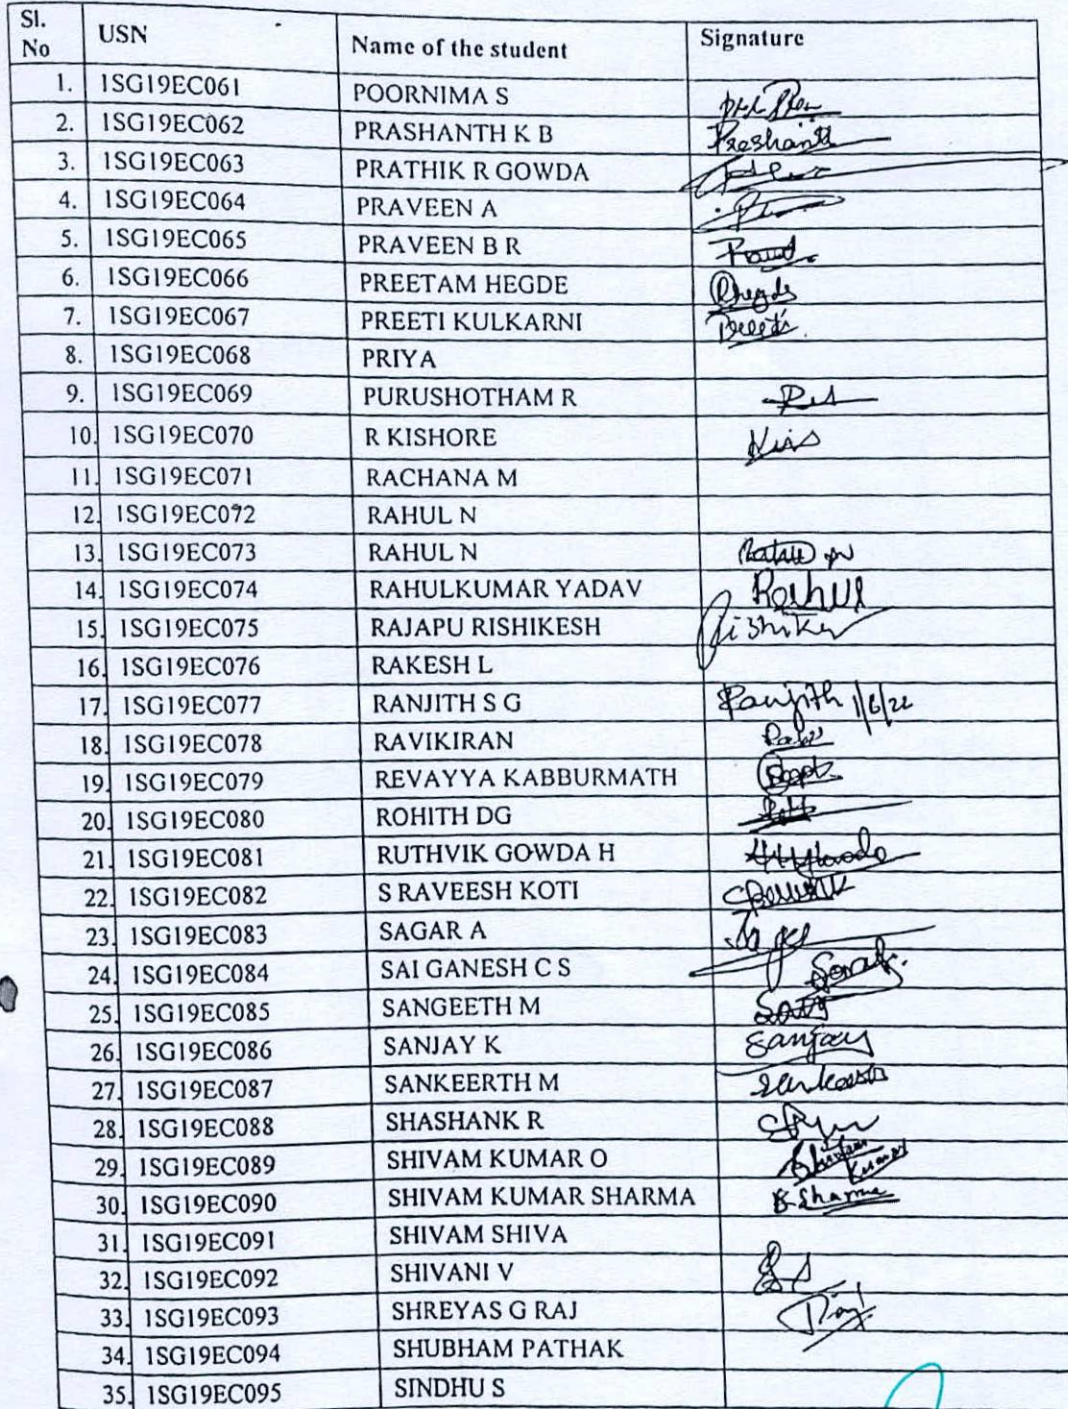 Sl. No USN Name of the student Signature
1. 1SG19EC061 POORNIMA S
2. 1SG19EC062 PRASHANTH K B Prashanth
3. 1SG19EC063 PRATHIK R GOWDA
4. 1SG19EC064 PRAVEEN A
5. 1SG19EC065 PRAVEEN B R
6. 1SG19EC066 PREETAM HEGDE Phegde
7. 1SG19EC067 PREETI KULKARNI Preeti
8. 1SG19EC068 PRIYA
9. 1SG19EC069 PURUSHOTHAM R
10. 1SG19EC070 R KISHORE
11. 1SG19EC071 RACHANA M
12. 1SG19EC072 RAHUL N
13. 1SG19EC073 RAHUL N
14. 1SG19EC074 RAHULKUMAR YADAV Rahul
15. 1SG19EC075 RAJAPU RISHIKESH
16. 1SG19EC076 RAKESH L
17. 1SG19EC077 RANJITH S G Ranjith 1/6/22
18. 1SG19EC078 RAVIKIRAN
19. 1SG19EC079 REVAYYA KABBURMATH
20. 1SG19EC080 ROHITH DG
21. 1SG19EC081 RUTHVIK GOWDA H
22. 1SG19EC082 S RAVEESH KOTI
23. 1SG19EC083 SAGAR A
24. 1SG19EC084 SAI GANESH C S
25. 1SG19EC085 SANGEETH M
26. 1SG19EC086 SANJAY K Sanjay
27. 1SG19EC087 SANKEERTH M
28. 1SG19EC088 SHASHANK R
29. 1SG19EC089 SHIVAM KUMAR O Shivam Kumar
30. 1SG19EC090 SHIVAM KUMAR SHARMA S. Sharma
31. 1SG19EC091 SHIVAM SHIVA
32. 1SG19EC092 SHIVANI V
33. 1SG19EC093 SHREYAS G RAJ
34. 1SG19EC094 SHUBHAM PATHAK
35. 1SG19EC095 SINDHU S